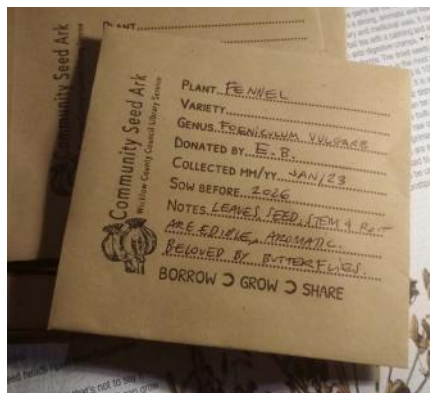 PLANT
Community Seed Ark
Community Seed Ark
Wicklow County Council Library Service
PLANT FENNEL
VARIETY
GENUS FOENICULUM VULGARE
DONATED BY E.B.
COLLECTED MM/YY JAN/23
SOW BEFORE 2026
NOTES LEAVES, SEED, STEM & ROOT
ARE EDIBLE, AROMATIC.
BELOVED BY BUTTERFLIES.
BORROW GROW SHARE
that's not to say